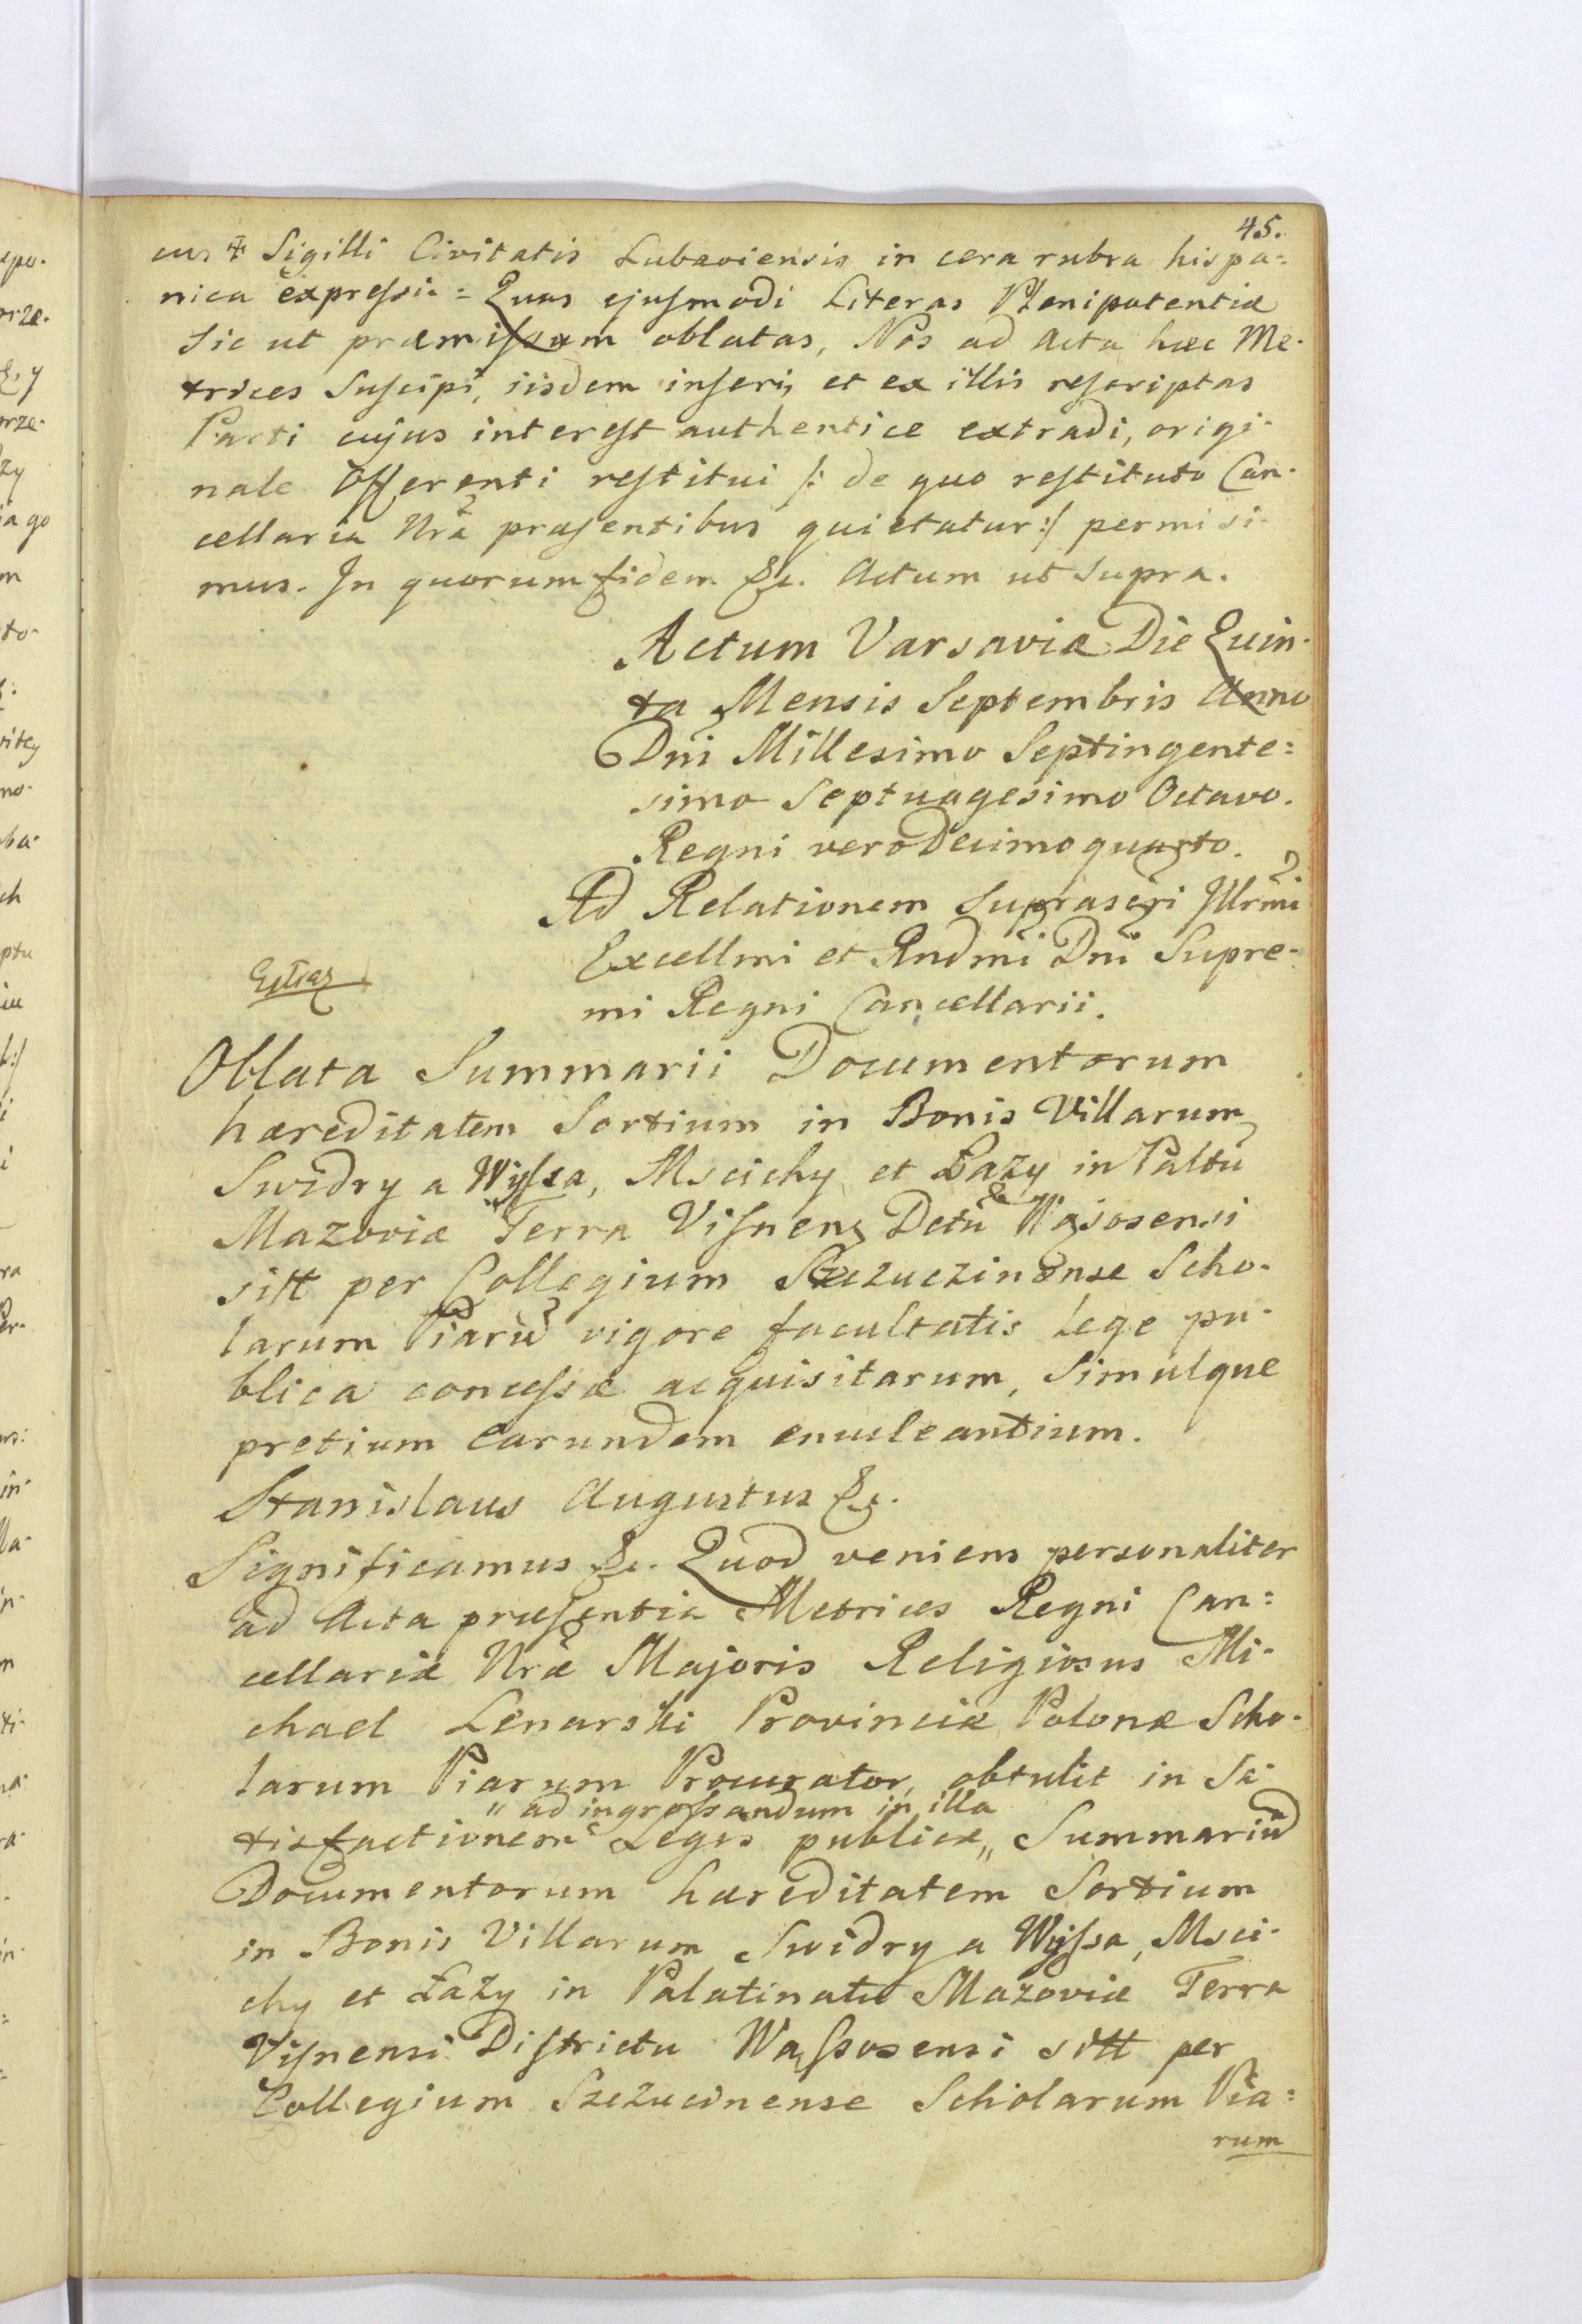 45.
cus ⌗ Sigilli Civitatis Lubaviensis in cera rubra hispa=
nica expressi = Quas ejusmodi Literas Plenipotentiæ
sic ut præmissum oblatas, Nos ad Acta hæc Me-
trices Suscipi, iisdem inseri, et ex illis rescriptas
Parti cujus interest authentice extradi, origi-
nale Offerenti restitui /: de quo restituto Can-
cellaria Nra præsentibus quietatur :/ permisi-
mus. In quorum fidem &c. Actum ut supra.
Actum Varsaviæ Die Quin-
ta Mensis Septembris Anno
Dni Millesimo Septingente=
simo Septuagesimo Octavo.
Regni vero Decimo quarto.
Ad Relationem suprascri Illrmi
Excellmi et Rndmi Dni Supre-
mi Regni Cancellarii.
Oblata Summarii Documentorum
hæreditatem Sortium in Bonis Villarum
Swidry a Wyssa, Mscichy et Łazy in Paltu
Mazoviæ Terra Visnens Dctu Wąsosensi
sitt per Collegium Szczuczinense Scho-
larum Piarũ vigore facultatis Lege pu-
blica concessæ acquisitarum, simulque
pretium earundem enucleantium.
Stanislaus Augustus &c.
Significamus &c. Quod veniens personaliter
ad Acta præsentia Metrices Regni Can=
cellariæ Nræ Majoris Religiosus Mi-
chael Lenarski Provinciæ Polonæ Scho-
larum Piarum Procurator, obtulit in Sa-
" ad ingrossandum in illa
tisfactionem Legis publicæ „ Summariũ
Documentorum hæreditatem Sortium
in Bonis Villarum Swidry a Wyssa, Msci-
chy et Łazy in Palatinatu Mazoviæ Terra
Visnensi Districtu Wąssosensi sitt per
Collegium Szczucinense Scholarum Pia=
rum